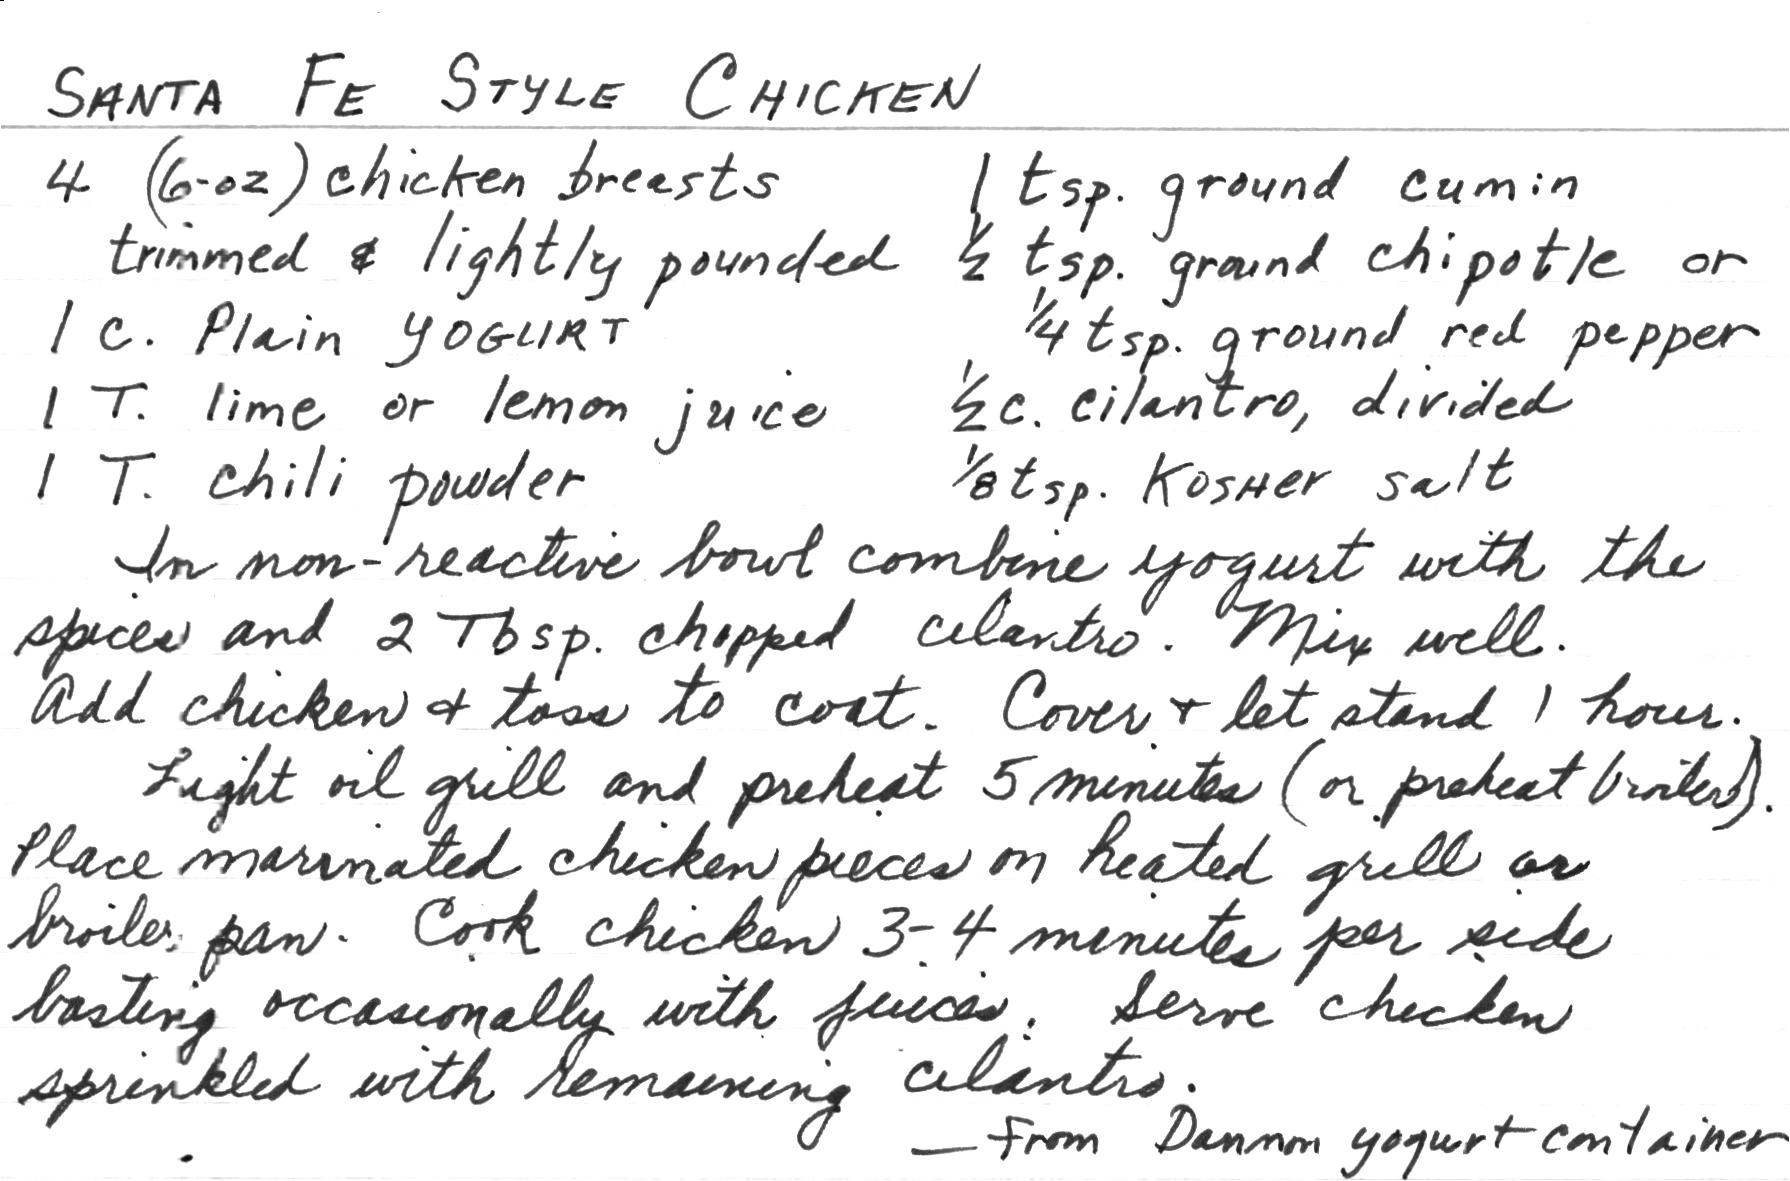 SANTA FE STYLE CHICKEN
4 (6-oz) chicken breasts
trimmed & lightly pounded
1 c. Plain YOGURT
1 T. lime or lemon juice
1 T. chili powder
1 tsp. ground cumin
1/2 tsp. ground chipotle or
1/4 tsp. ground red pepper
1/2 c. cilantro, divided
1/8 tsp. KOSHer salt
In non-reactive bowl combine yogurt with the
spices and 2 Tbsp. chopped cilantro. Mix well.
Add chicken & toss to coat. Cover & let stand 1 hour.
Light oil grill and preheat 5 minutes (or preheat broiler).
Place marinated chicken pieces on heated grill or
broiler pan. Cook chicken 3-4 minutes per side
basting occasionally with juices. Serve chicken
sprinkled with remaining cilantro.
— From Dannon yogurt container